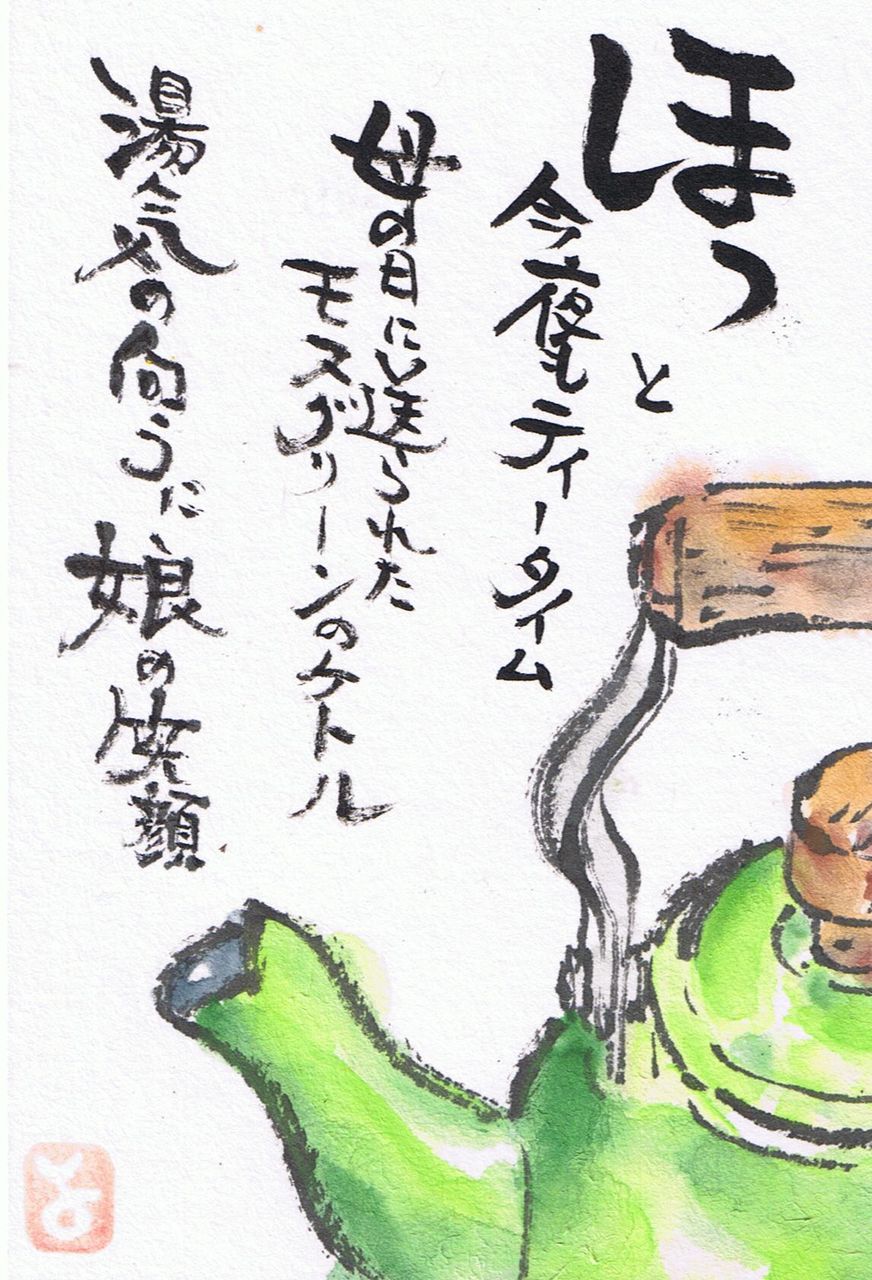 ほっと
今夜もティータイム
母の日に送られた
モスグリーンのケトル
湯気の向うに娘の笑顔
よ